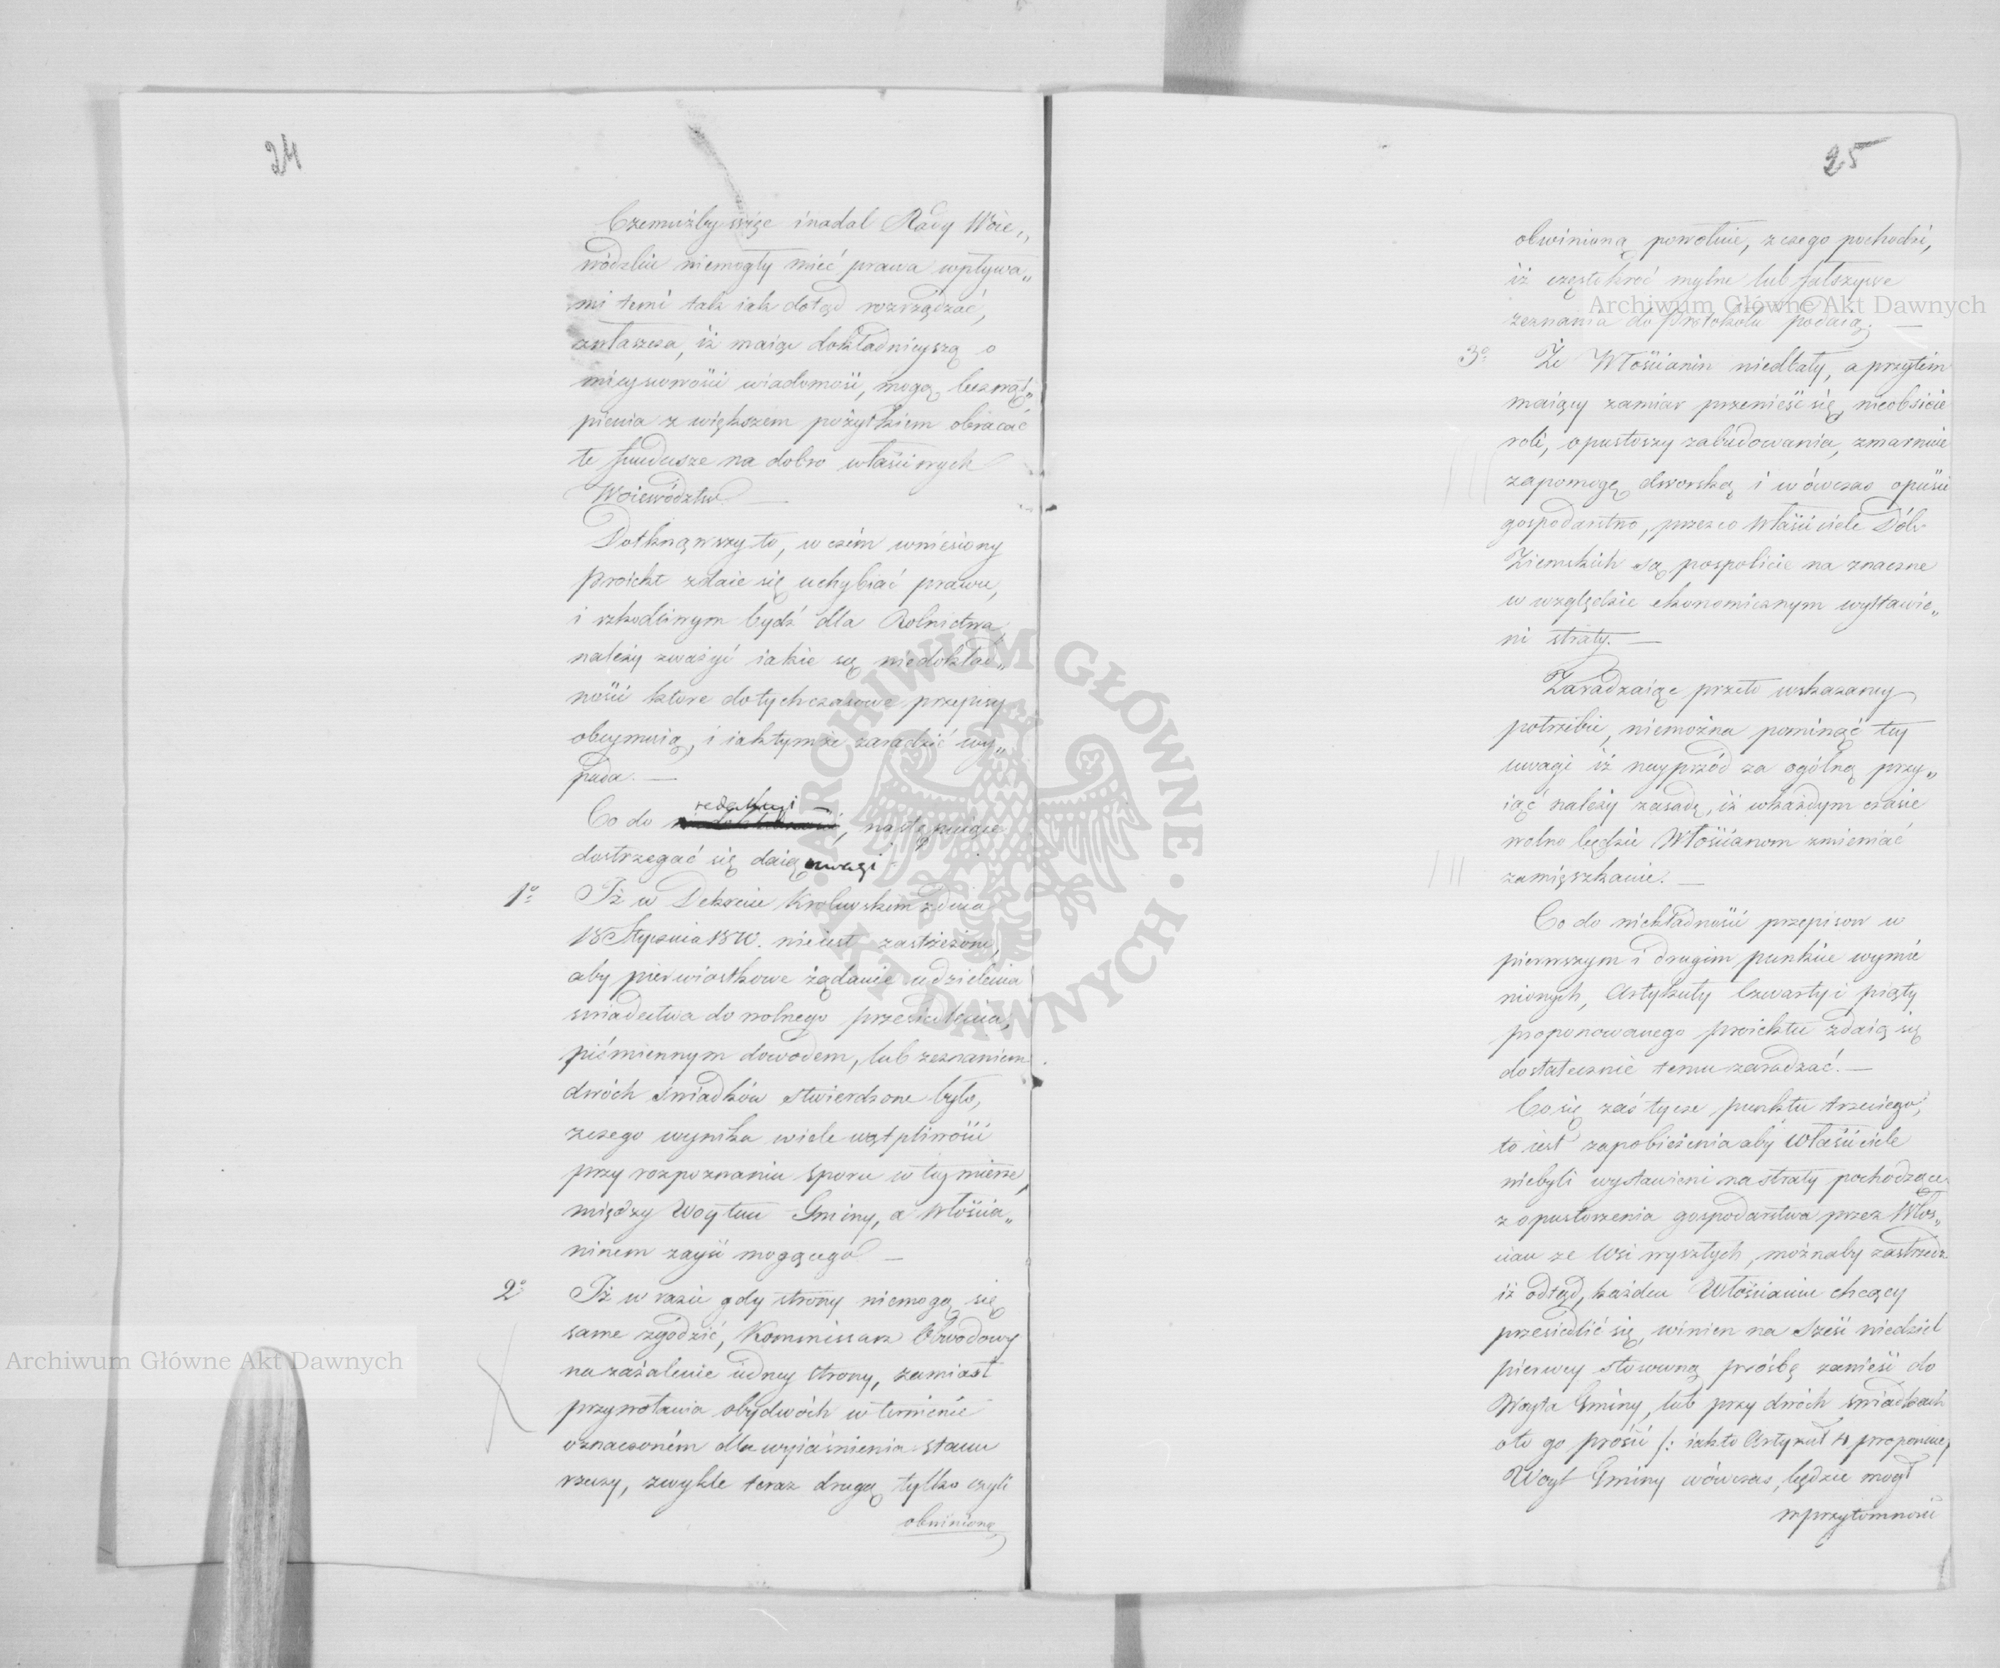 24
Czemużby więc i nadal Rady Woie„
wódzkie niemogły mieć prawa wpływa„
mi temi tak iak dotąd rozrządzać,
zwłaszcza, iż maiąc dokładnieyszą o
mieyscowości wiadomość, mogą bezwąt„
pienia z większem pożytkiem obracać
te fundusze na dobro właściwych
Województw. —
Dotknąwszy to, w czém wniesiony
Proiekt zdaie się uchybiać prawu,
i szkodliwym bydź dla Rolnictwa
należy zważyć iakie są niedokład„
ności które dotychczasowe przepisy
obeymuią, i iak tymże zaradzić wy„
pada. —
Co do redakcyi, następuiące
dostrzegać się daią uwagi
1o Iż w Dekrecie Krolewskim z dnia
18 Stycznia 1810. nieiest zastrzeżone,
aby pierwiastkowe żądanie udzielenia
świadectwa do wolnego przesiedlenia,
piśmiennym dowodem, lub zeznaniem
dwóch świadków stwierdzone było,
z czego wynika wiele wątpliwości
przy rozpoznaniu sporu w tey mierze,
między Woytem Gminy, a Włościa„
ninem zayść mogącego —
2o Iż w razie gdy strony niemogą się
same zgodzić, Kommissarz Obwodowy
na zażalenie iedney strony, zamiast
przywołania obydwóch w terminie
oznaczoném dla wyiaśnienia stanu
rzeczy, zwykle teraz drugą tylko czyli
obwinioną
25
obwinioną powołuie, z czego pochodzi,
iż częstokroć mylne lub fałszywe
zeznania do Protokołu podaią. —
3o Że Włościanin niedbały, a przytém
maiący zamiar przenieść się, nieobsieie
roli, opustoszy zabudowania, zmarnuie
zapomogę dworską i wówczas opuści
gospodarstwo, przez co Właściciele Dóbr
Ziemskich są pospolicie na znaczne
w względzie ekonomicznym wystawie„
ni straty. —
Zaradzaiąc przeto wskazaney
potrzebie, niemożna pominąć tey
uwagi iż nayprzód za ogólną przy„
iąć należy zasadę, iż w każdym czasie
wolno będzie Włościanom zmieniać
zamięszkanie. —
Co do niekładności przepisow w
pierwszym i drugim punkcie wymie
nionych, Artykuły Czwarty i piąty
proponowanego proiektu zdaią się
dostatecznie temu zaradzać. —
Co się zaś tycze punktu trzeciego,
to iest zapobieżenia aby Właściciele
niebyli wystawieni na straty pochodzące
z opustoszenia gospodarstwa przez Włoś„
cian ze Wsi wyszłych, możnaby zastrzedz
iż odtąd, każden Włościanin chcący
przesiedlić się, winien na sześć niedziel
pierwey stosowną prośbę zanieść do
Woyta Gminy, lub przy dwóch świadkach
oto go prosić /: iak to Artykuł 4 proponuie,
Woyt Gminy wówczas, będzie mógł
w przytomności
Archiwum Główne Akt Dawnych
Archiwum Główne Akt Dawnych
ARCHIWUM GŁÓWNE AKT DAWNYCH